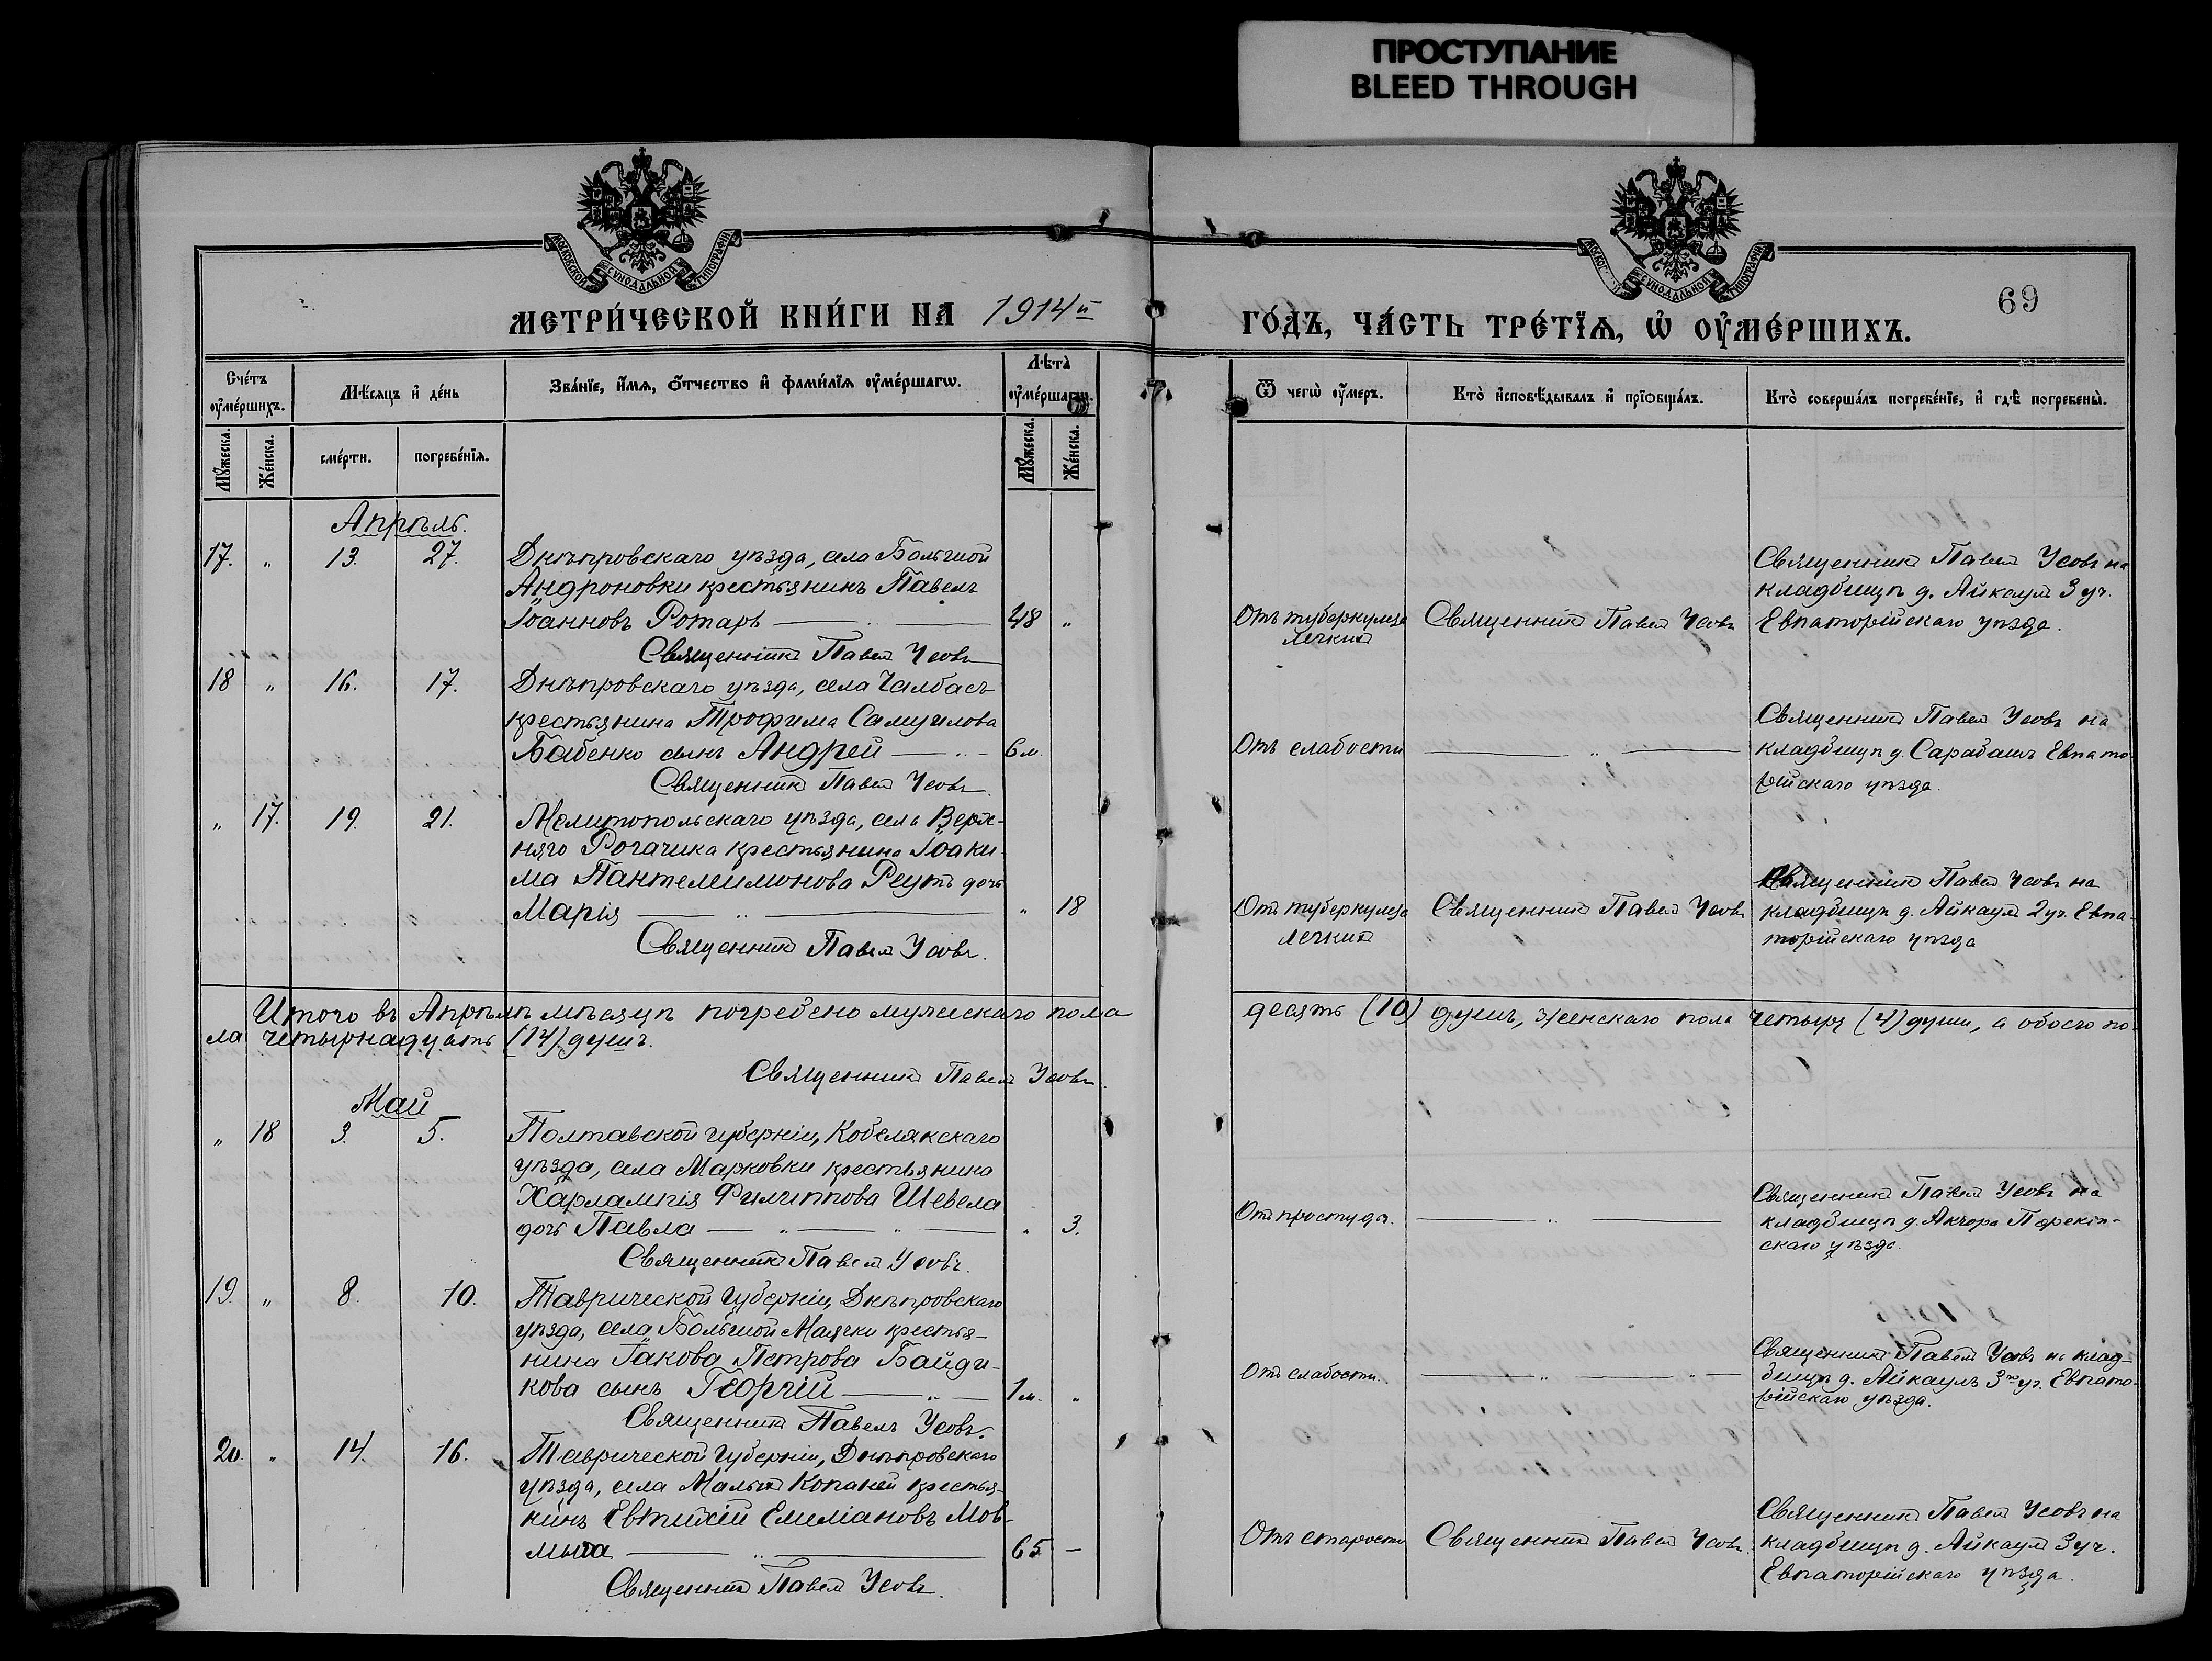 ПРОСТУПАНИЕ
BLEED THROUGH
МОСКОВСКОЙ СѴНОДАЛЬНОЙ ТИПОГРАФІИ
МОСКОВ СѴНОДАЛЬНОЙ ТИПОГРАФІИ
69
МЕТРИ́ЧЕСКОЙ КНИ́ГИ НА 1914й
ГО́ДЪ, ЧА́СТЬ ТРЕ́ТЇѦ, Ѡ҆ ОУ҆МЕ́РШИХЪ.
Сче́тъ оу҆ме́ршихъ.
Мѣ́сяцъ и҆ де́нь
Зва́нїе, и҆́мѧ, ѻ҆́тчество и҆ фами́лїѧ оу҆ме́ршагѡ.
Лѣ́та оу҆ме́ршагѡ.
Ѿ чегѡ̀ оу҆́меръ.
Кто̀ и҆сповѣ́дывалъ и҆ прїѡбща́лъ.
Кто̀ соверша́лъ погребе́нїе, и҆ гдѣ̀ погребены̀.
Мꙋ́жеска. Же́нска.
сме́рти. погребе́нїѧ.
Мꙋ́жеска. Же́нска.
Апрѣль.
17. " 13. 27. Днѣпровскаго уѣзда, села Большой
Андроновки крестьянинъ Павелъ
Іоанновъ Ротарь — 48 "
Священникъ Павелъ Усовъ
Отъ туберкулеза
легкихъ
Священникъ Павелъ Усовъ
Священникъ Павелъ Усовъ на
кладбищѣ д. Айкаулъ 3 уч.
Евпаторійскаго уѣзда.
18 " 16. 17. Днѣпровскаго уѣзда, села Чалбасъ
крестьянина Трофима Самуилова
Бабенко сынъ Андрей — " — 6 м.
Священникъ Павелъ Усовъ.
Отъ слабости — " —
Священникъ Павелъ Усовъ на
кладбищѣ д. Сарабашъ Евпато-
рійскаго уѣзда.
" 17. 19. 21. Мелитопольскаго уѣзда, села Верх-
няго Рогачика крестьянина Іоаки-
ма Пантелеимонова Реутъ дочь
Марія — " — " 18
Священникъ Павелъ Усовъ.
Отъ туберкулеза
легкихъ
Священникъ Павелъ Усовъ
Священникъ Павелъ Усовъ на
кладбищѣ д. Айкаулъ 2 уч. Евпа-
торійскаго уѣзда
Итого въ Апрѣлѣ мѣсяцѣ погребено мужескаго пола десять (10) душъ, женскаго пола четыре (4) души, а обоего по-
ла четырнадцать (14) душъ.
Священникъ Павелъ Усовъ.
Май
" 18 3. 5. Полтавской губерніи, Кобелякскаго
уѣзда, села Марковки крестьянина
Харлампія Филиппова Шевела
дочь Павла — " — " — " 3.
Священникъ Павелъ Усовъ.
Отъ простуды. — " —
Священникъ Павелъ Усовъ на
кладбищѣ д. Акчора Перекоп-
скаго уѣзда.
19. " 8. 10. Таврической губерніи, Днѣпровскаго
уѣзда, села Большой Маячки крестья-
нина Іакова Петрова Байди-
кова сынъ Георгій — " — 1 м. "
Священникъ Павелъ Усовъ.
Отъ слабости. — " — " —
Священникъ Павелъ Усовъ на клад-
бищѣ д. Айкаулъ 3го уч. Евпато-
рійскаго уѣзда.
20. " 14. 16. Таврической губерніи, Днѣпровскаго
уѣзда, села Малыхъ Копаней крестья-
нинъ Евтихій Емиліановъ Мов-
— " — 65 —
Священникъ Павелъ Усовъ.
Отъ старости
Священникъ Павелъ Усовъ.
Священникъ Павелъ Усовъ на
кладбищѣ д. Айкаулъ 3 уч.
Евпаторійскаго уѣзда.